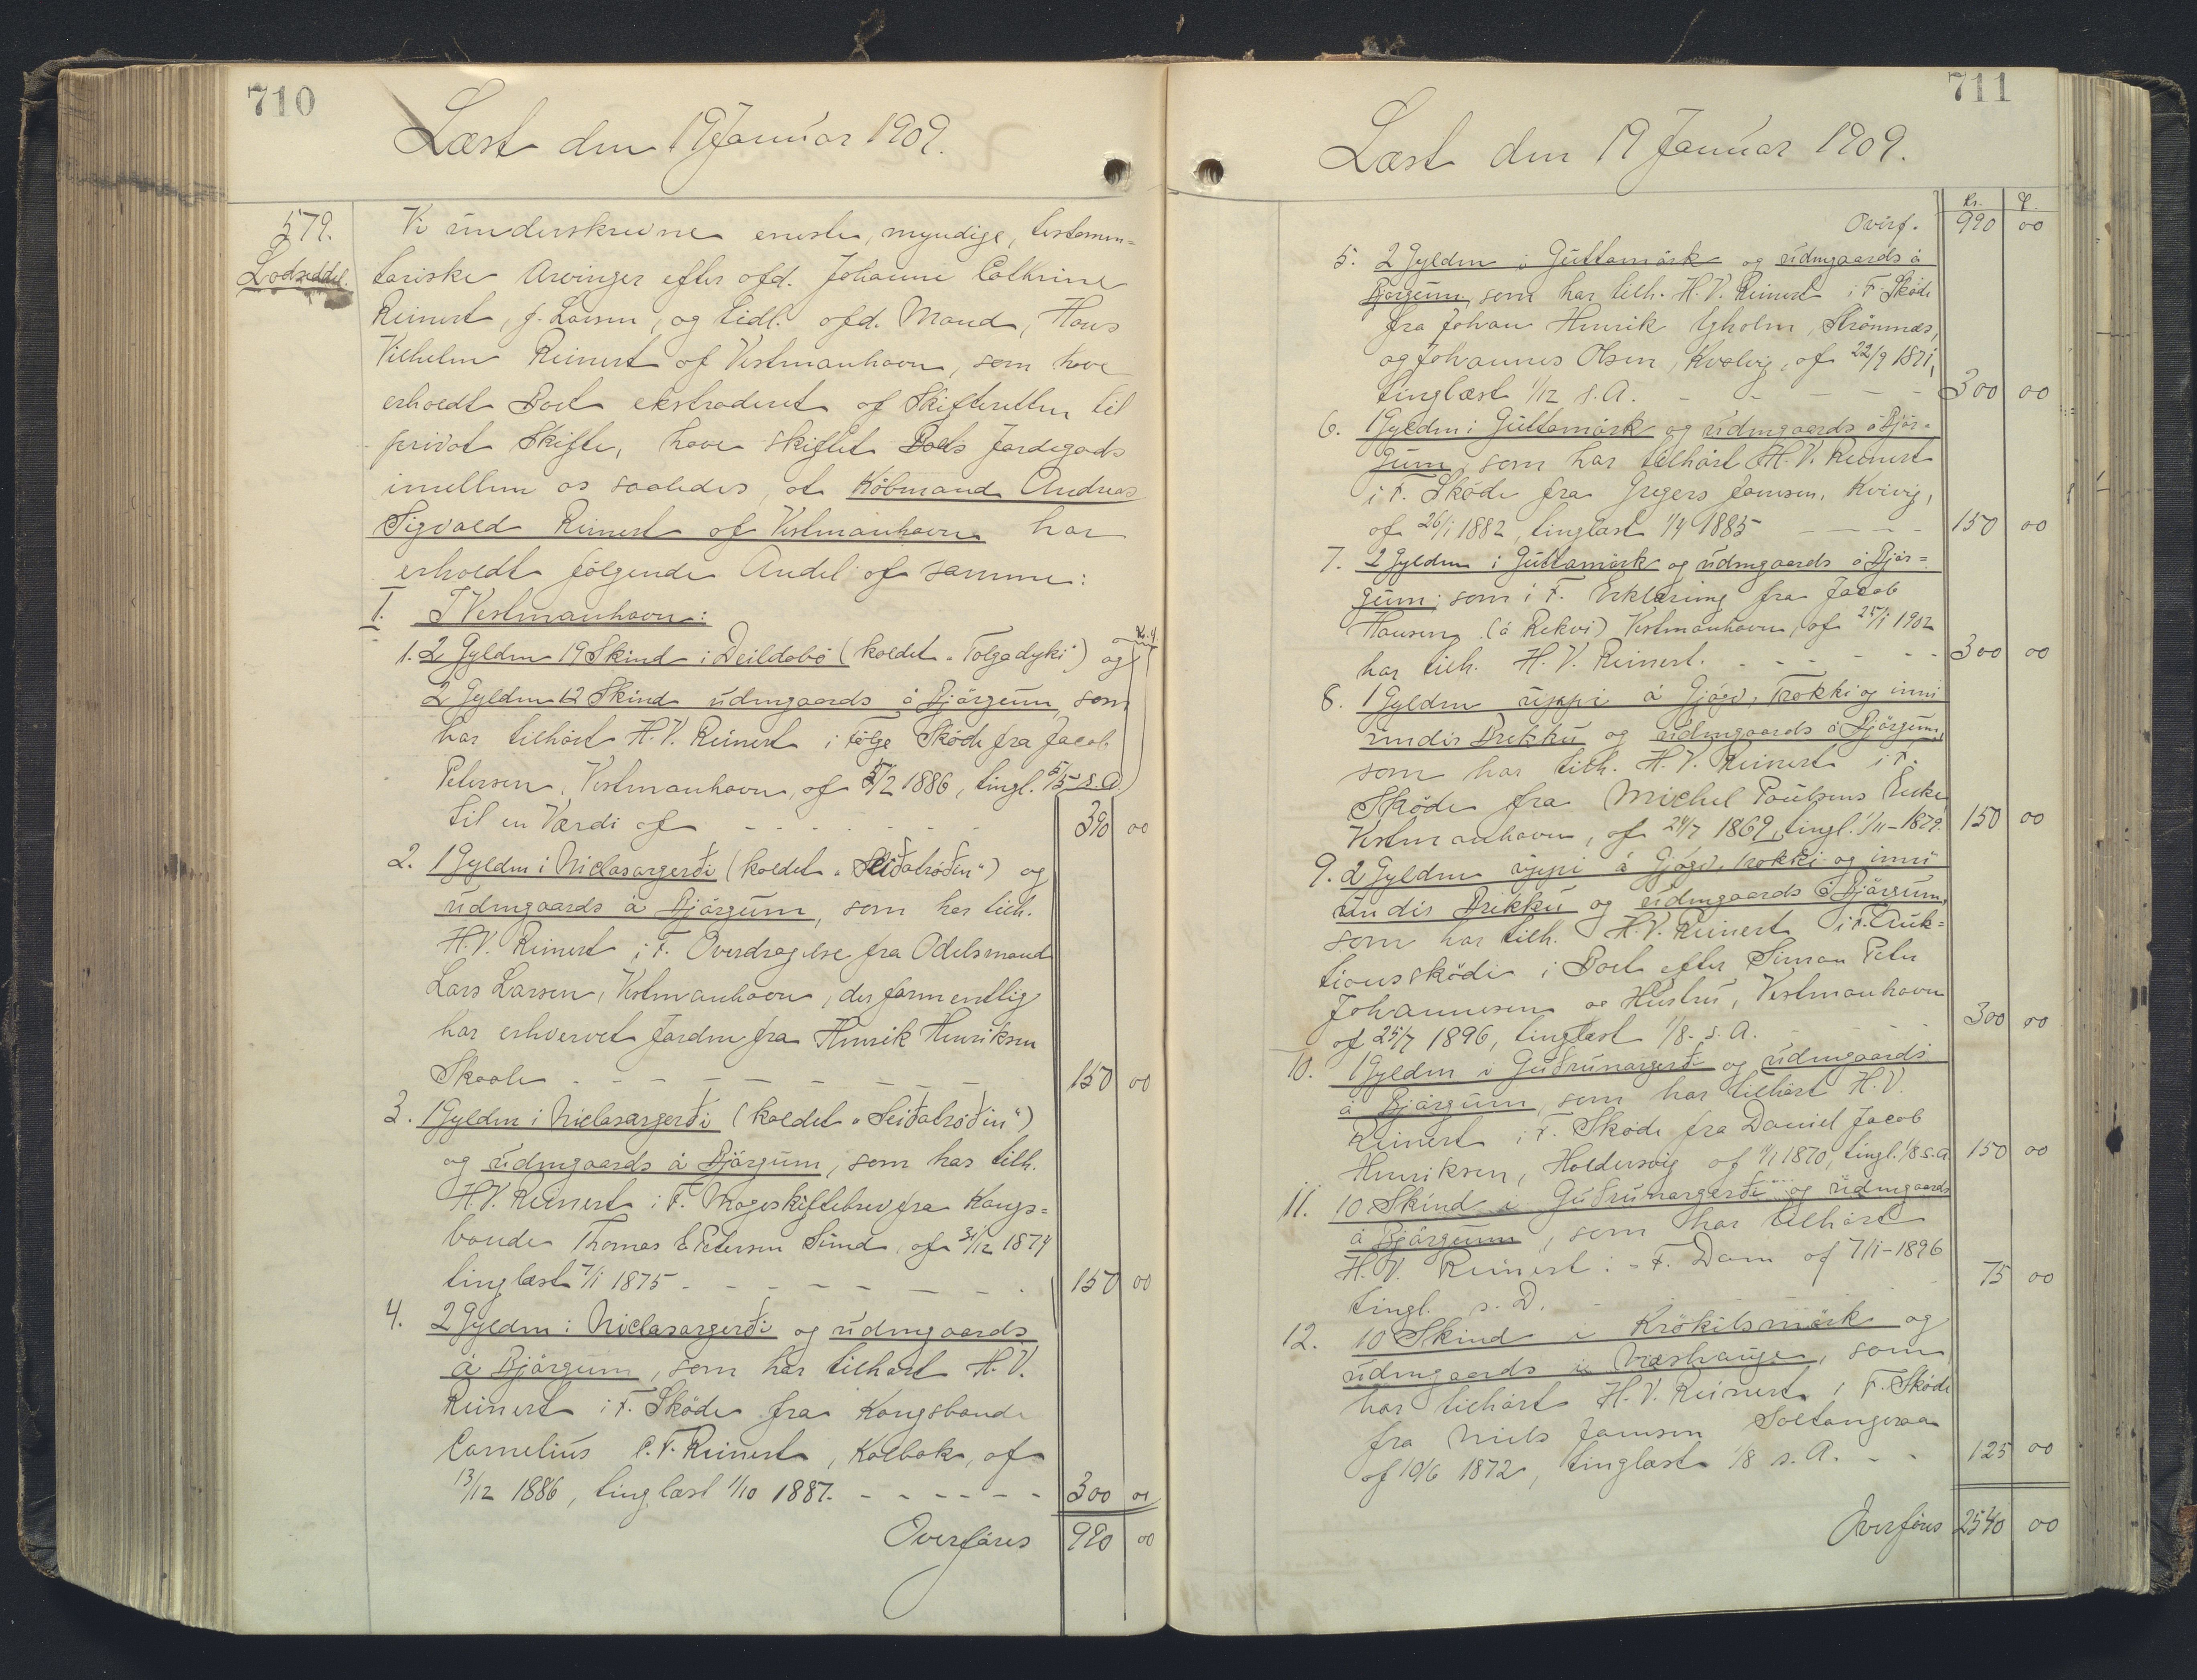 710
Læst den 19 Januar 1909.
579.
Lodseddel.
Vi underskrevne eneste, myndige, testamen=
tariske Arvinger efter afd. Johanne Cathrine
Reinert, f. Larsen, og tidl. afd. Mand, Hans
Vilhelm Reinert af Vestmanhavn, som have
erholdt Boet ekstraderet af Skifteretten til
privat Skifte, have skiftet Boets Jordegods
imellem os saaledes, at Købmand Andreas
Sigvald Reinert af Vestmanhavn har
erholdt følgende Andel af samme:
I. I Vestmanhavn:
Kr. Ø.
1. 2 Gylden 19 Skind i Deildabø (kaldet "Tolgadyki") og
2 Gylden 12 Skind udengaards á Bjørgum, som
har tilhørt H.V. Reinert i følge Skøde fra Jacob
Petersen, Vestmanhavn, af 5/2 1886, tingl. 5/5 s.A.
til en Værdi af - - - - - - 390 00
2. 1 Gylden i Niclasargerði (kaldet "Seiðatrøðin") og
udengaards á Bjørgum, som har tilh.
H.V. Reinert i F. Overdragelse fra Odelsmand
Lars Larsen, Vestmanhavn, der formentlig
har erhvervet Jorden fra Henrik Henriksen
Skaale - - - - - - - 150 00
3. 1 Gylden i Niclasargerði (kaldet "Seiðatrøðin")
og udengaards á Bjørgum, som har tilh.
H.V. Reinert i F. Mageskiftebrev fra Kongs=
bonde Thomas E Petersen Sund, af 31/12 1874
tinglæst 7/1 1875 - - - - - - - 150 00
4. 2 Gylden i Niclasargerði og udengaards
á Bjørgum, som har tilhørt H.V.
Reinert i F. Skøde fra Kongsbonde
Cornelius C.F. Reinert, Kolbak, af
13/12 1886, tinglæst 1/10 1887. - - - - - - 300 00
Overføres 990 00
711
Læst den 19 Januar 1909.
Kr. Ø.
Overf. 990 00
5. 2 Gylden i Guttamørk og udengaards á
Bjørgum, som har tilh. H.V. Reinert i F. Skøde
fra Johan Henrik Egholm, Strømnæs,
og Johannes Olsen, Kvalvig, af 22/9 1871,
tinglæst 1/12 s.A. - - - - - 300 00
6. 1 Gylden i Guttamørk og udengaards á Bjør=
gum, som har tilhørt H.V. Reinert
i F. Skøde fra Gregers Joensen, Kvivig,
af 26/1 1882, tinglæst 1/4 1885 - - - - 150 00
7. 2 Gylden i Guttamørk og udengaards á Bjør=
gum, som i F. Erklæring fra Jacob
Hansen (á Rekvi) Vestmanhavn, af 25/1 1902
har tilh. H.V. Reinert. - - - - - 300 00
8. 1 Gylden uppi á Gjógv, Trøkki og inni
undir Brekku og udengaards á Bjørgum,
som har tilh. H.V. Reinert i F.
Skøde fra Michel Poulsens Enke,
Vestmanhavn, af 24/7 1869, tingl. 1/11 - 1879. 150 00
9. 2 Gylden uppi á Gjógv, Trøkki og inni
undir Brekku og udengaards á Bjørgum,
som har tilh. H.V. Reinert i F. Auk=
tionsskøde i Boet efter Simon Peter
Johannesen og Hustru, Vestmanhavn
af 25/7 1896, tinglæst 1/8 s.A. 300 00
10. 1 Gylden i Guðrunargerði og udengaards
á Bjørgum, som har tilhørt H.V.
Reinert i F. Skøde fra Daniel Jacob
Henriksen, Haldersvig af 1/1 1870, tingl. 1/8 s.A. 150 00
11. 10 Skind i Guðrunargerði og udengaards
á Bjørgum, som har tilhørt
H.V. Reinert i F. Dom af 7/1 - 1896
tingl. s.D. 75 00
12. 10 Skind i Krókilsmørk og
udengaards i Væshauge, som
har tilhørt H.V. Reinert i F. Skøde
fra Niels Joensen Saltangeraa
af 10/6 1872, tinglæst 1/8 s.A. - - 125 00
Overføres 2540 00